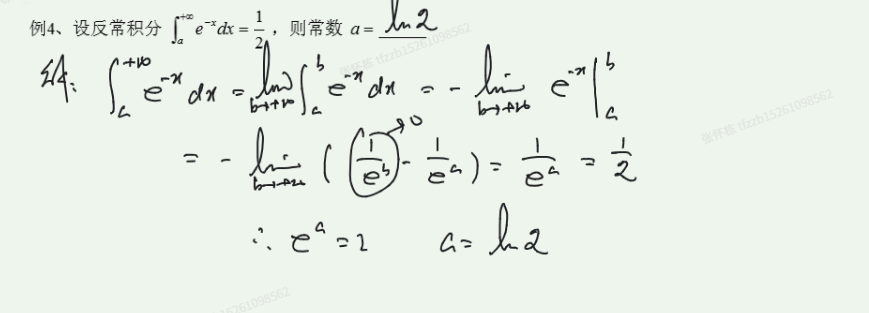 例4、设反常积分 ∫_a^{+∞} e^{-x}dx = 1/2，则常数 a = ln2
解: ∫_a^{+∞} e^{-x} dx = lim_{b→+∞} ∫_a^b e^{-x} dx = - lim_{b→+∞} e^{-x} |_a^b
= - lim_{b→+∞} ( 1/e^b →0 - 1/e^a ) = 1/e^a = 1/2
∴ e^a = 2 a = ln2
张怀德 tfzzb15261098562
张怀德 tfzzb15261098562
15261098562